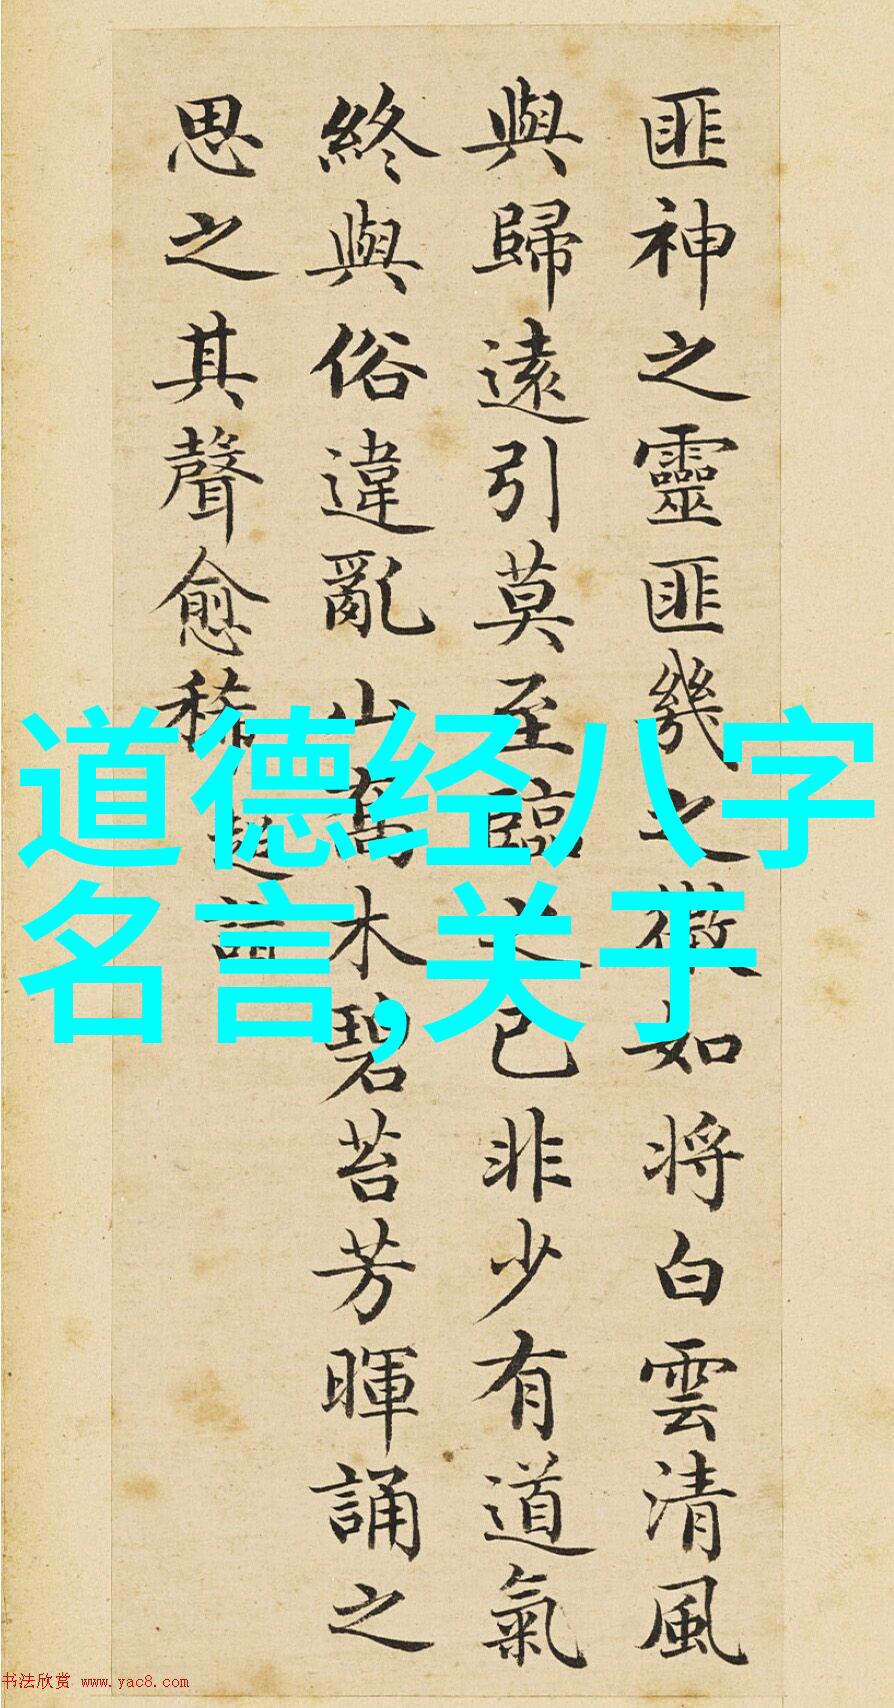 道德经八字
名言,关于
匪神之靈匪幾之微如将白雲清風
與歸遠引莫至臨之已非少有道氣
終與俗違亂山喬木碧苔芳暉誦之
思之其聲愈稀
超詣
书法欣赏 www.yac8.com